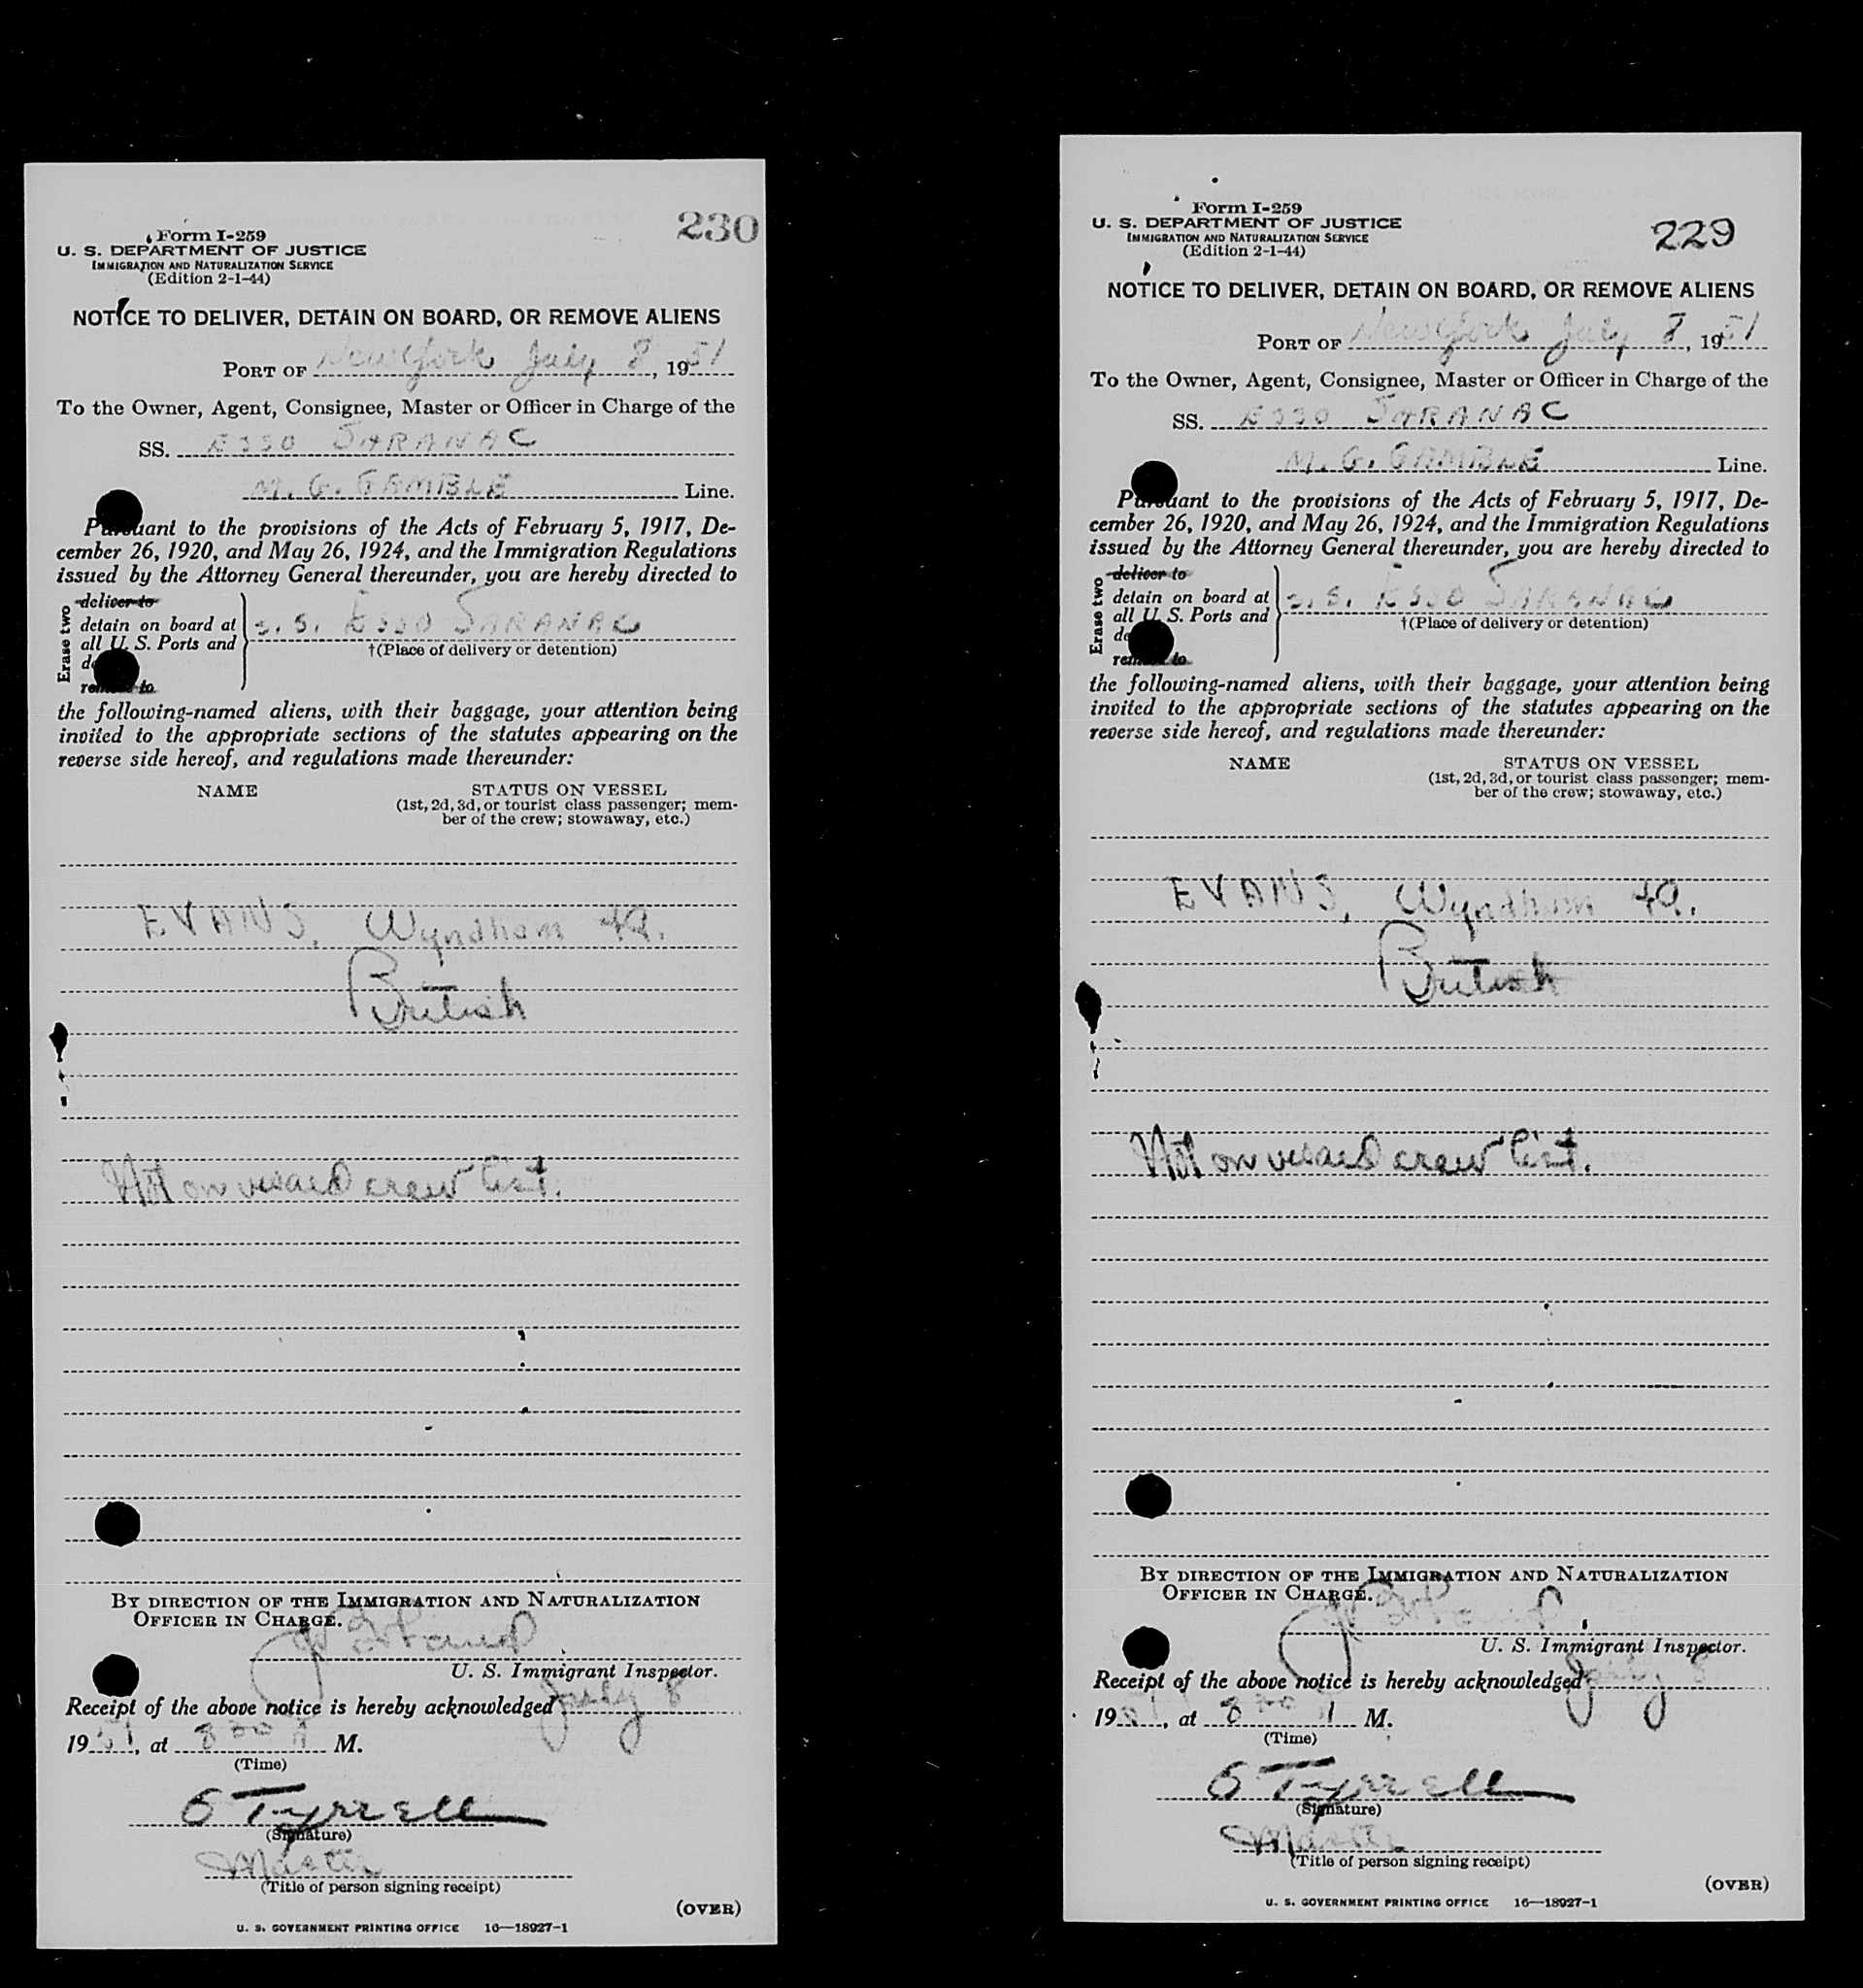 230
Form I-259
U. S. DEPARTMENT OF JUSTICE
IMMIGRATION AND NATURALIZATION SERVICE
(Edition 2-1-44)
NOTICE TO DELIVER, DETAIN ON BOARD, OR REMOVE ALIENS
PORT OF New York July 8, 1951
To the Owner, Agent, Consignee, Master or Officer in Charge of the
SS. ESSO SARANAC
M. G. GAMBLE Line.
Pursuant to the provisions of the Acts of February 5, 1917, De-
cember 26, 1920, and May 26, 1924, and the Immigration Regulations
issued by the Attorney General thereunder, you are hereby directed to
Erase two
deliver to
detain on board at
all U. S. Ports and
remove to
S.S. ESSO SARANAC
†(Place of delivery or detention)
the following-named aliens, with their baggage, your attention being
invited to the appropriate sections of the statutes appearing on the
reverse side hereof, and regulations made thereunder:
NAME STATUS ON VESSEL
(1st, 2d, 3d, or tourist class passenger; mem-
ber of the crew; stowaway, etc.)
EVANS, Wyndham
British
Not on vessels crew list.
BY DIRECTION OF THE IMMIGRATION AND NATURALIZATION
OFFICER IN CHARGE.
U. S. Immigrant Inspector.
Receipt of the above notice is hereby acknowledged July 8
1951, at 8 30 A M.
(Time)
Tyrrell
(Signature)
Master
(Title of person signing receipt)
(OVER)
U. S. GOVERNMENT PRINTING OFFICE 16—18927-1
229
Form I-259
U. S. DEPARTMENT OF JUSTICE
IMMIGRATION AND NATURALIZATION SERVICE
(Edition 2-1-44)
NOTICE TO DELIVER, DETAIN ON BOARD, OR REMOVE ALIENS
PORT OF New York July 8, 1951
To the Owner, Agent, Consignee, Master or Officer in Charge of the
SS. ESSO SARANAC
M. G. GAMBLE Line.
Pursuant to the provisions of the Acts of February 5, 1917, De-
cember 26, 1920, and May 26, 1924, and the Immigration Regulations
issued by the Attorney General thereunder, you are hereby directed to
Erase two
deliver to
detain on board at
all U. S. Ports and
remove to
S.S. ESSO SARANAC
†(Place of delivery or detention)
the following-named aliens, with their baggage, your attention being
invited to the appropriate sections of the statutes appearing on the
reverse side hereof, and regulations made thereunder:
NAME STATUS ON VESSEL
(1st, 2d, 3d, or tourist class passenger; mem-
ber of the crew; stowaway, etc.)
EVANS, Wyndham
British
Not on vessels crew list.
BY DIRECTION OF THE IMMIGRATION AND NATURALIZATION
OFFICER IN CHARGE.
U. S. Immigrant Inspector.
Receipt of the above notice is hereby acknowledged July 8
1951, at 8 30 A M.
(Time)
Tyrrell
(Signature)
Master
(Title of person signing receipt)
(OVER)
U. S. GOVERNMENT PRINTING OFFICE 16—18927-1